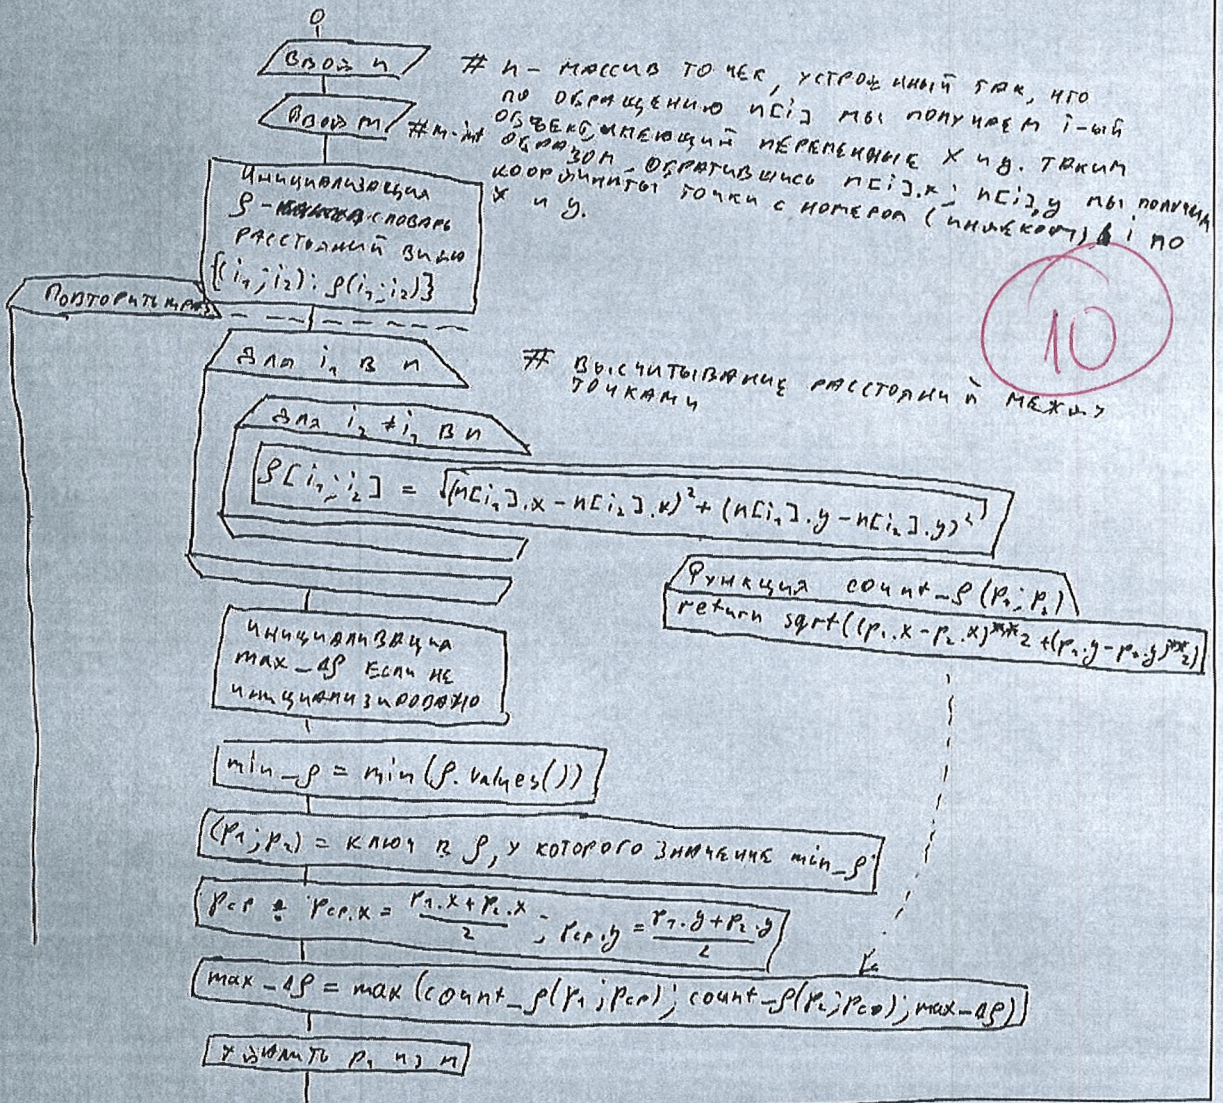 Ввод n
# n - массив точек, устроенный так, что
по обращению n[i] мы получаем i-ый
Ввод m
#m-int
объект, имеющий переменные x и y. Таким
образом, обратившись n[i].x; n[i].y мы получим
координаты точки с номером (индексом) i по
x и y.
Инициализация
ρ - словарь
расстояний вида
{(i₁; i₂): ρ(i₁; i₂)}
10
Повторить m раз
Для i₁ в n
# высчитывание расстояний между
точками
Для i₂ ≠ i₁ в n
ρ[i₁; i₂] = √(n[i₁].x - n[i₂].x)² + (n[i₁].y - n[i₂].y)²
Функция count_ρ(p₁; p₂)
return sqrt((p₁.x - p₂.x)**2 + (p₁.y - p₂.y)**2)
инициализация
max_Δρ если не
инициализировано
min_ρ = min(ρ.values())
(p₁; p₂) = ключ в ρ, у которого значение min_ρ
pср : pср.x = p₁.x + p₂.x / 2 ; pср.y = p₁.y + p₂.y / 2
max_Δρ = max(count_ρ(p₁; pср); count_ρ(p₂; pср); max_Δρ)
удалить p₁ из n